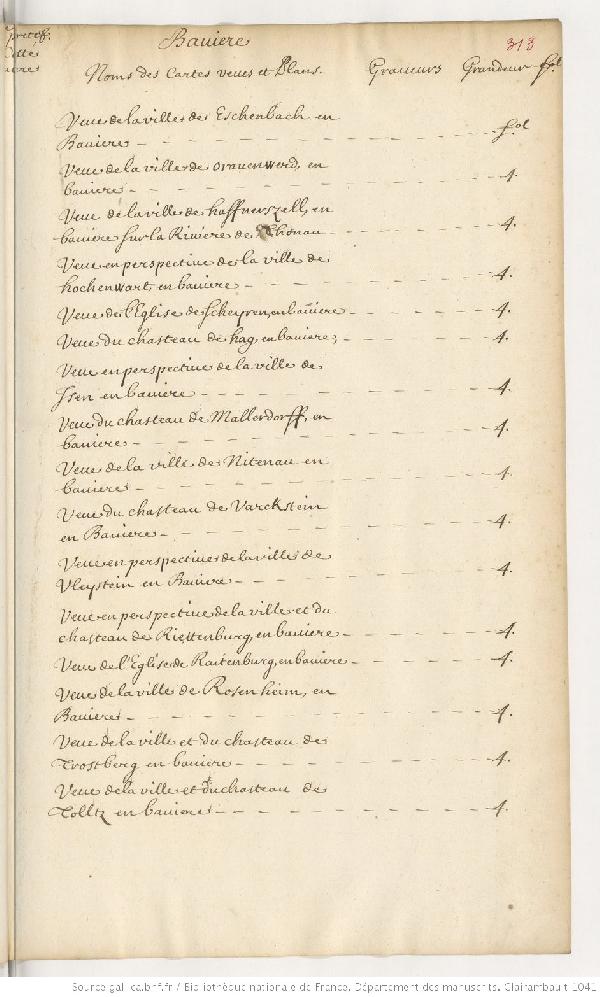 Baviere
313
Noms des Cartes veues et Plans. Graveurs Grandeur
Veue de la ville de Eschenbach en
Baviere - fol
Veue de la ville de Gravenwerd, en
baviere - 4.
Veue de la ville de haffnerszell, en
baviere sur la Riviere de Thonau - 4.
Veue en perspective de la ville de
hochenwart, en baviere - 4.
Veue de l'Eglise de Scheyren, en baviere - 4.
Veue du chasteau de hag, en baviere, - 4.
Veue en perspective de la ville de
Jsen en baviere - 4.
Veue du chasteau de Mallerdorff, en
baviere - 4.
Veue de la ville de Nitenau en
baviere - 4.
Veue du chasteau de Varckstein
en Baviere - 4.
Veue en perspective de la ville de
Vleystein en Baviere - 4.
Veue en perspective de la ville et du
chasteau de Riettenburg, en baviere - 4.
Veue de l'Eglise de Raitenburg, en baviere - 4.
Veue de la ville de Rosenheim, en
Baviere - 4.
Veue de la ville et du chasteau de
Trostberg en baviere - 4.
Veue de la ville et du chasteau de
Tolltz en baviere - 4.
Source gallica.bnf.fr / Bibliothèque nationale de France. Département des manuscrits. Clairambault 1041